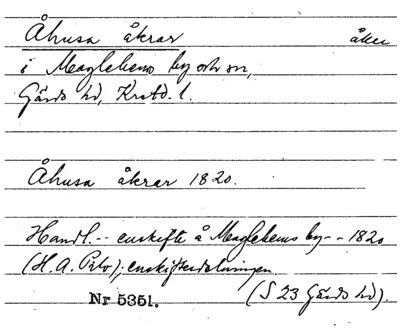 Åhusa åkrar åker
i Maglehems by och sn,
Gärds hd, Krstd. l.
Åhusa åkrar 1820.
Handl. -- enskifte å Maglehems by -- 1820
(H. A. Prtv); enskiftesdelningen
Nr 5351. (S 23 Gärds hd).